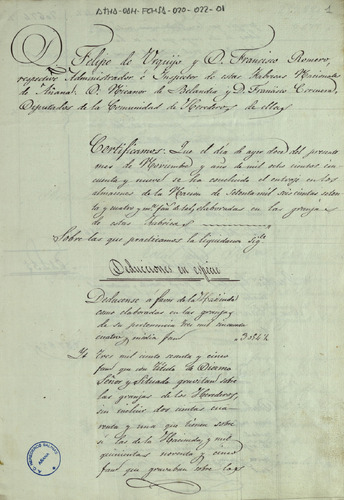 ATHA-DAH-FCHSA-020-022-01
1
D. Felipe de Urquijo y D. Francisco Romero,
respectivos Administrador é Inspector de estas Fabricas Nacionales
de Añana: D. Nicanor de Belandia y D. Francisco
Diputados de la Comunidad de Herederos de ellas
Certificamos: Que el dia de ayer doce del presente
mes de Noviembre y año de mil ocho cientos cin
cuenta y nueve se ha concluido el entroje en los
almacenes de la Nacion de setenta mil seis cientas seten
ta y cuatro y mª fanˢ de sal elaboradas en la granja
de estas fabricas
Sobre las que practicamos la liquidacion sigᵗᵉ
Deducciones en especie
Deducense á favor de la Hacienda
como elaboradas en las granjas
de su pertenencia tres mil cincuenta
cuatro y media fanˢ 3.054 ½
Yd tres mil cuatro y cinco
fanˢ que con titulo de Diezmo
Señor y Situado gravitan sobre
las granjas de los Herederos,
sin incluir dos cientas cua
renta y una que tienen sobre
sí las de la Hacienda, y mil
quinientas noventa y cinco
fanˢ que gravaban sobre las